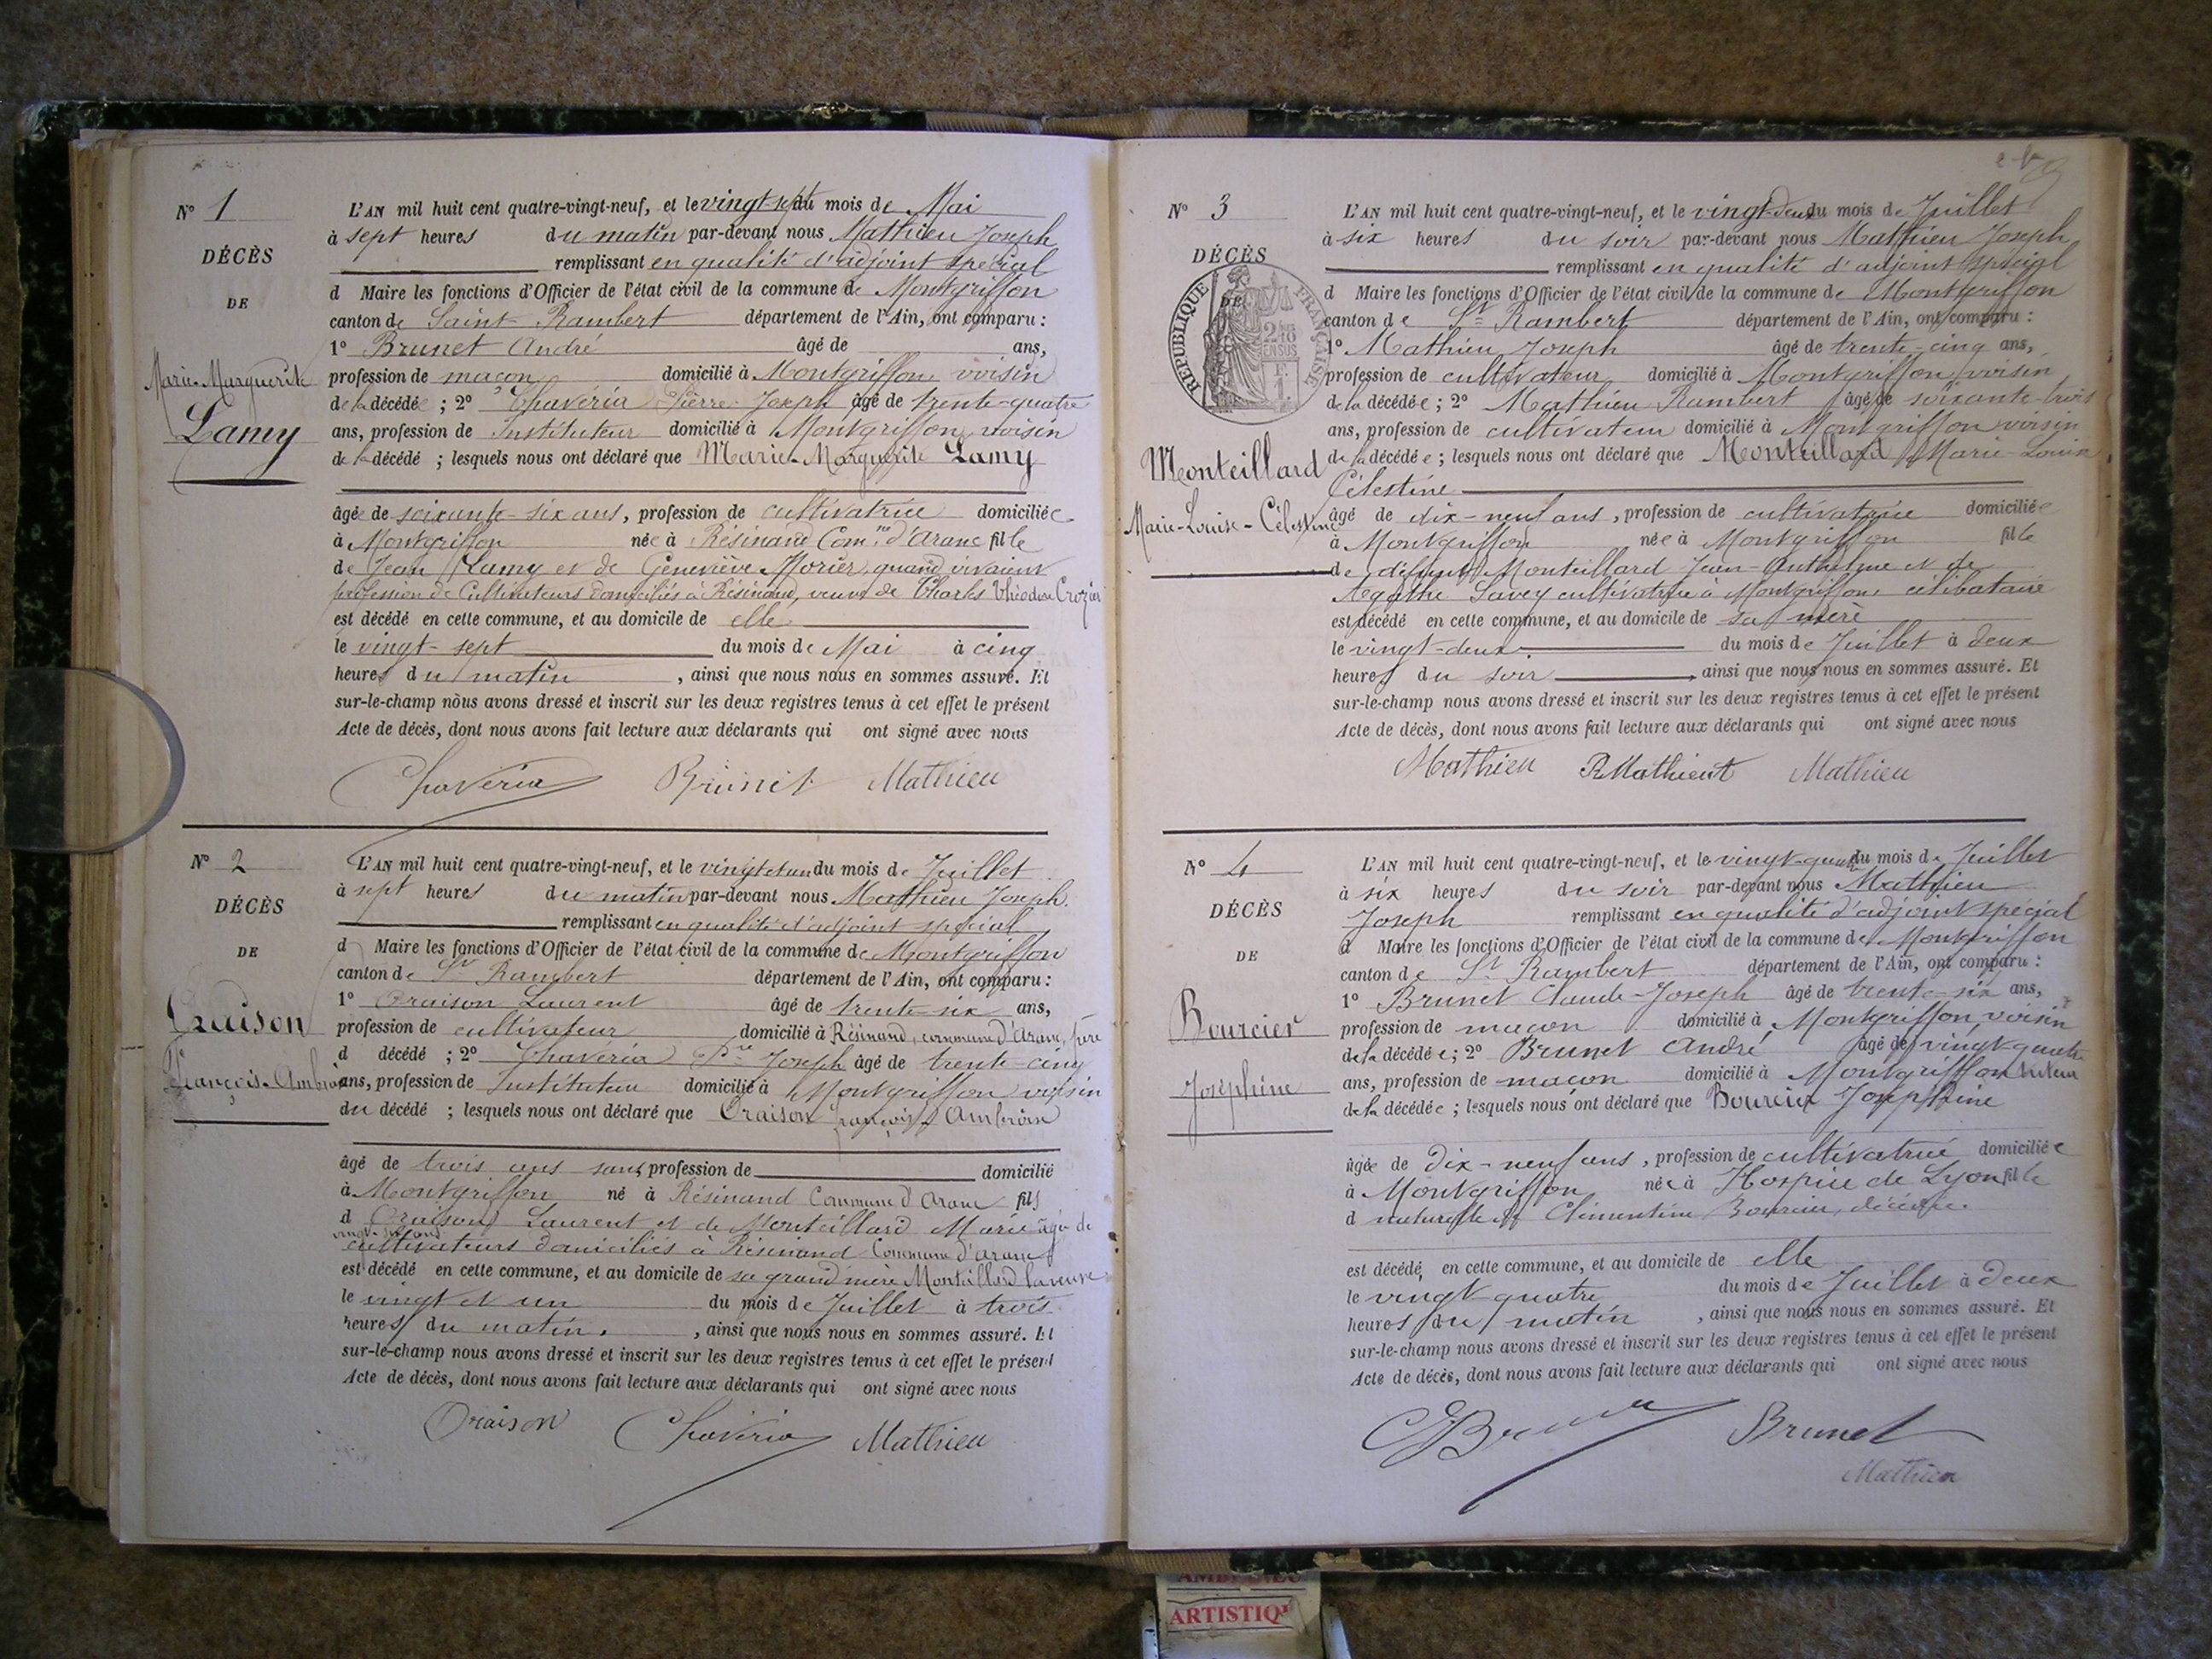 N° 1
DÉCÈS
DE
Marie-Marguerite
Lamy
L'AN mil huit cent quatre-vingt-neuf, et le vingt-sept du mois de Mai
à sept heures du matin par-devant nous Mathieu Joseph
remplissant en qualité d'adjoint spécial
d Maire les fonctions d'Officier de l'état civil de la commune de Montgriffon
canton de Saint-Rambert département de l'Ain, ont comparu :
1° Brunet André âgé de ans,
profession de maçon domicilié à Montgriffon, voisin
de la décédée ; 2° Chavéria Pierre-Joseph âgé de trente-quatre
ans, profession de Instituteur domicilié à Montgriffon, voisin
de la décédé ; lesquels nous ont déclaré que Marie-Marguerite Lamy
âgée de soixante-six ans, profession de cultivatrice domiciliée
à Montgriffon née à Résinand Com.ne d'Aranc fille
de Jean Lamy et de Geneviève Morier, quand vivaient
profession de Cultivateurs domiciliés à Résinand, veuve de Charles Théodore Crozier
est décédé en cette commune, et au domicile de elle
le vingt-sept du mois de Mai à cinq
heures du matin, ainsi que nous nous en sommes assuré. Et
sur-le-champ nous avons dressé et inscrit sur les deux registres tenus à cet effet le présent
Acte de décès, dont nous avons fait lecture aux déclarants qui ont signé avec nous
Chavéria Brunet Mathieu
N° 2
DÉCÈS
DE
Oraison
François-Ambroise
L'AN mil huit cent quatre-vingt-neuf, et le vingt et un du mois de Juillet
à sept heures du matin par-devant nous Mathieu Joseph
remplissant en qualité d'adjoint spécial
d Maire les fonctions d'Officier de l'état civil de la commune de Montgriffon
canton de St Rambert département de l'Ain, ont comparu :
1° Oraison Laurent âgé de trente-six ans,
profession de cultivateur domicilié à Résinand, commune d'Aranc, père
d décédé ; 2° Chavéria Pre Joseph âgé de trente-cinq
ans, profession de Instituteur domicilié à Montgriffon voisin
du décédé ; lesquels nous ont déclaré que Oraison François Ambroise
âgé de trois ans sans profession de domicilié
à Montgriffon né à Résinand Commune d'Aranc fils
d Oraison Laurent et de Monteillard Marie âgée de
vingt-six ans
cultivateurs domiciliés à Résinand Commune d'Aranc
est décédé en cette commune, et au domicile de sa grand'mère Monteillard la veuve
le vingt et un du mois de Juillet à trois
heures du matin, ainsi que nous nous en sommes assuré. Et
sur-le-champ nous avons dressé et inscrit sur les deux registres tenus à cet effet le présent
Acte de décès, dont nous avons fait lecture aux déclarants qui ont signé avec nous
Oraison Chavéria Mathieu
N° 3
DÉCÈS
DE
RÉPUBLIQUE FRANÇAISE
Monteillard
Marie-Louise-Célestine
L'AN mil huit cent quatre-vingt-neuf, et le vingt-deux du mois de Juillet
à six heures du soir par-devant nous Mathieu Joseph
remplissant en qualité d'adjoint spécial
d Maire les fonctions d'Officier de l'état civil de la commune de Montgriffon
canton de St Rambert département de l'Ain, ont comparu :
1° Mathieu Joseph âgé de trente-cinq ans,
profession de cultivateur domicilié à Montgriffon, voisin
de la décédée ; 2° Mathieu Rambert âgé de soixante-trois
ans, profession de cultivateur domicilié à Montgriffon voisin
de la décédée ; lesquels nous ont déclaré que Monteillard Marie-Louise
Célestine
âgé de dix-neuf ans, profession de cultivatrice domiciliée
à Montgriffon née à Montgriffon fille
de défunt Monteillard Jean-Anthelme et de
Agathe Savey cultivatrice à Montgriffon, célibataire
est décédé en cette commune, et au domicile de sa mère
le vingt-deux du mois de Juillet à deux
heures du soir, ainsi que nous nous en sommes assuré. Et
sur-le-champ nous avons dressé et inscrit sur les deux registres tenus à cet effet le présent
Acte de décès, dont nous avons fait lecture aux déclarants qui ont signé avec nous
Mathieu R Mathieu Mathieu
N° 4
DÉCÈS
DE
Bourcier
Joséphine
L'AN mil huit cent quatre-vingt-neuf, et le vingt-quatre du mois de Juillet
à six heures du soir par-devant nous Mathieu
Joseph remplissant en qualité d'adjoint spécial
d Maire les fonctions d'Officier de l'état civil de la commune de Montgriffon
canton de St Rambert département de l'Ain, ont comparu :
1° Brunet Claude-Joseph âgé de trente-six ans,
profession de maçon domicilié à Montgriffon, voisin
de la décédée ; 2° Brunet André âgé de vingt-quatre
ans, profession de maçon domicilié à Montgriffon tuteur
de la décédée ; lesquels nous ont déclaré que Bourcier Joséphine
âgée de dix-neuf ans, profession de cultivatrice domiciliée
à Montgriffon née à Hospice de Lyon fille
d naturelle de Clémentine Bourcier, décédée.
est décédé, en cette commune, et au domicile de elle
le vingt-quatre du mois de Juillet à deux
heures du matin, ainsi que nous nous en sommes assuré. Et
sur-le-champ nous avons dressé et inscrit sur les deux registres tenus à cet effet le présent
Acte de décès, dont nous avons fait lecture aux déclarants qui ont signé avec nous
Brunet
Mathieu
ARTISTIQ